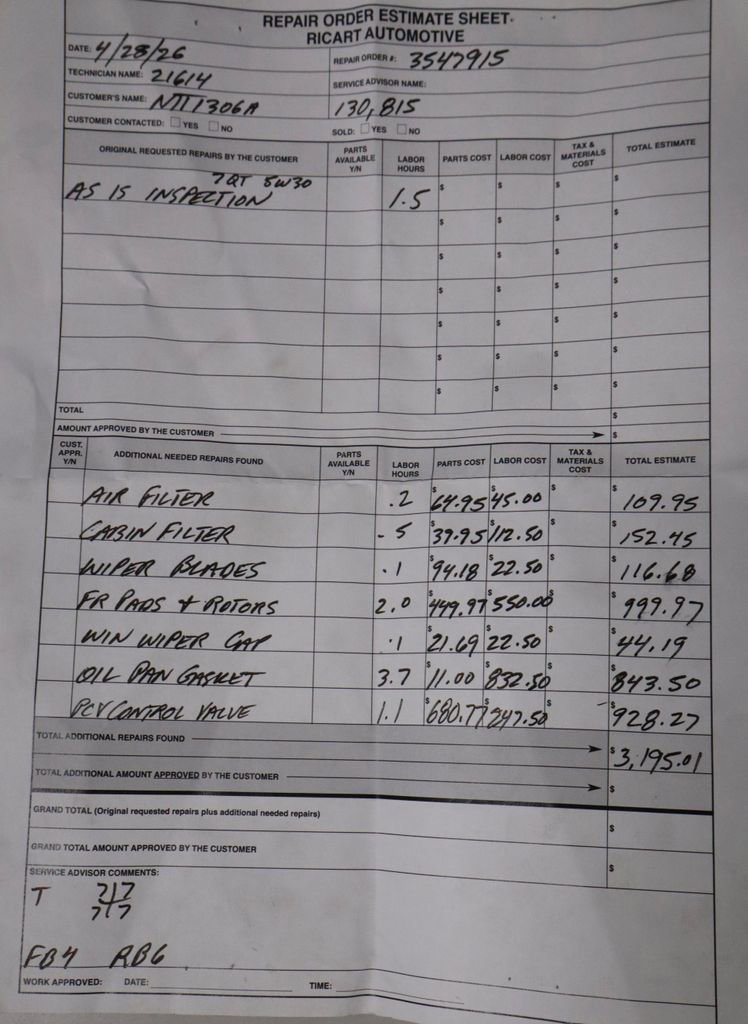 REPAIR ORDER ESTIMATE SHEET
RICART AUTOMOTIVE
DATE: 4/28/26 REPAIR ORDER #: 3547915
TECHNICIAN NAME: 21614 SERVICE ADVISOR NAME:
CUSTOMER'S NAME: NTT1306A 130,815
CUSTOMER CONTACTED: YES NO SOLD: YES NO
ORIGINAL REQUESTED REPAIRS BY THE CUSTOMER PARTS AVAILABLE Y/N LABOR HOURS PARTS COST LABOR COST TAX & MATERIALS COST TOTAL ESTIMATE
7QT 5W30
AS IS INSPECTION 1.5 $ $ $ $
$ $ $ $
$ $ $ $
$ $ $ $
$ $ $ $
$ $ $ $
$ $ $ $
TOTAL $
AMOUNT APPROVED BY THE CUSTOMER $
CUST. APPR. Y/N ADDITIONAL NEEDED REPAIRS FOUND PARTS AVAILABLE Y/N LABOR HOURS PARTS COST LABOR COST TAX & MATERIALS COST TOTAL ESTIMATE
AIR FILTER .2 $64.95 $45.00 $ $109.95
CABIN FILTER .5 $39.95 $112.50 $ $152.45
WIPER BLADES .1 $94.18 $22.50 $ $116.68
FR PADS + ROTORS 2.0 $449.97 $550.00 $ $999.97
WIN WIPER CAP .1 $21.69 $22.50 $ $44.19
OIL PAN GASKET 3.7 $11.00 $832.50 $ $843.50
PCV CONTROL VALVE 1.1 $680.77 $247.50 $ $928.27
TOTAL ADDITIONAL REPAIRS FOUND $3,195.01
TOTAL ADDITIONAL AMOUNT APPROVED BY THE CUSTOMER $
GRAND TOTAL (Original requested repairs plus additional needed repairs) $
GRAND TOTAL AMOUNT APPROVED BY THE CUSTOMER $
SERVICE ADVISOR COMMENTS:
T 7|7
7|7
FB4 RB6
WORK APPROVED: DATE: TIME: